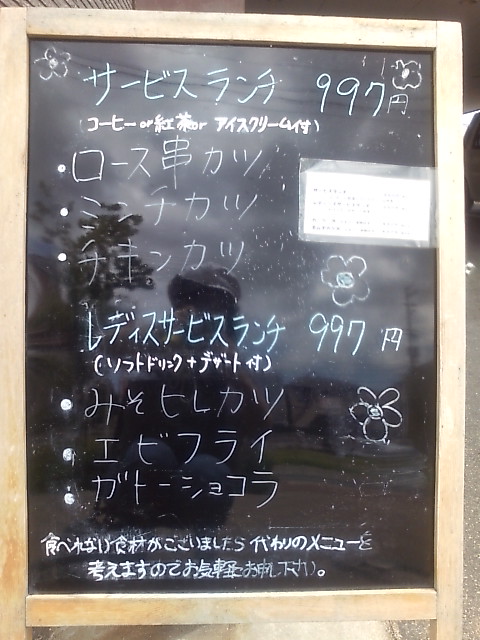 サービスランチ 997円
(コーヒー or 紅茶 or アイスクリーム付)
・ロース串カツ
・ミンチカツ
・チキンカツ
レディスサービスランチ 997円
(ソフトドリンク+デザート付)
・みそヒレカツ
・エビフライ
・ガトーショコラ
食べれない食材がございましたら代わりのメニューを
考えますのでお気軽にお申し下さい。